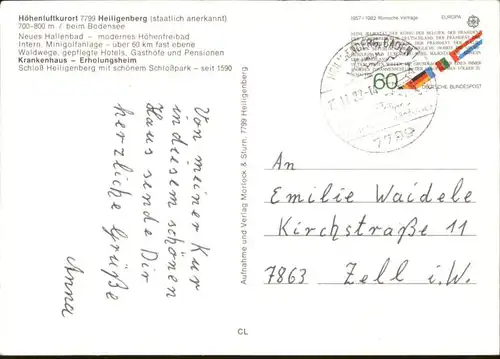 Höhenluftkurort 7799 Heiligenberg (staatlich anerkannt)
700–800 m / beim Bodensee
Neues Hallenbad – modernes Höhenfreibad
Intern. Minigolfanlage – über 60 km fast ebene
Waldwege, gepflegte Hotels, Gasthöfe und Pensionen
Krankenhaus – Erholungsheim
Schloß Heiligenberg mit schönem Schloßpark – seit 1590
Von meiner Kur
in diesem schönen
Haus sende Dir
herzliche Grüße
Anna
Aufnahme und Verlag Morlock & Sturn, 7799 Heiligenberg
CL
1957–1982 Römische Verträge
EUROPA
60
DEUTSCHE BUNDESPOST
7799
An
Emilie Waidele
Kirchstraße 11
7863 Zell i.W.